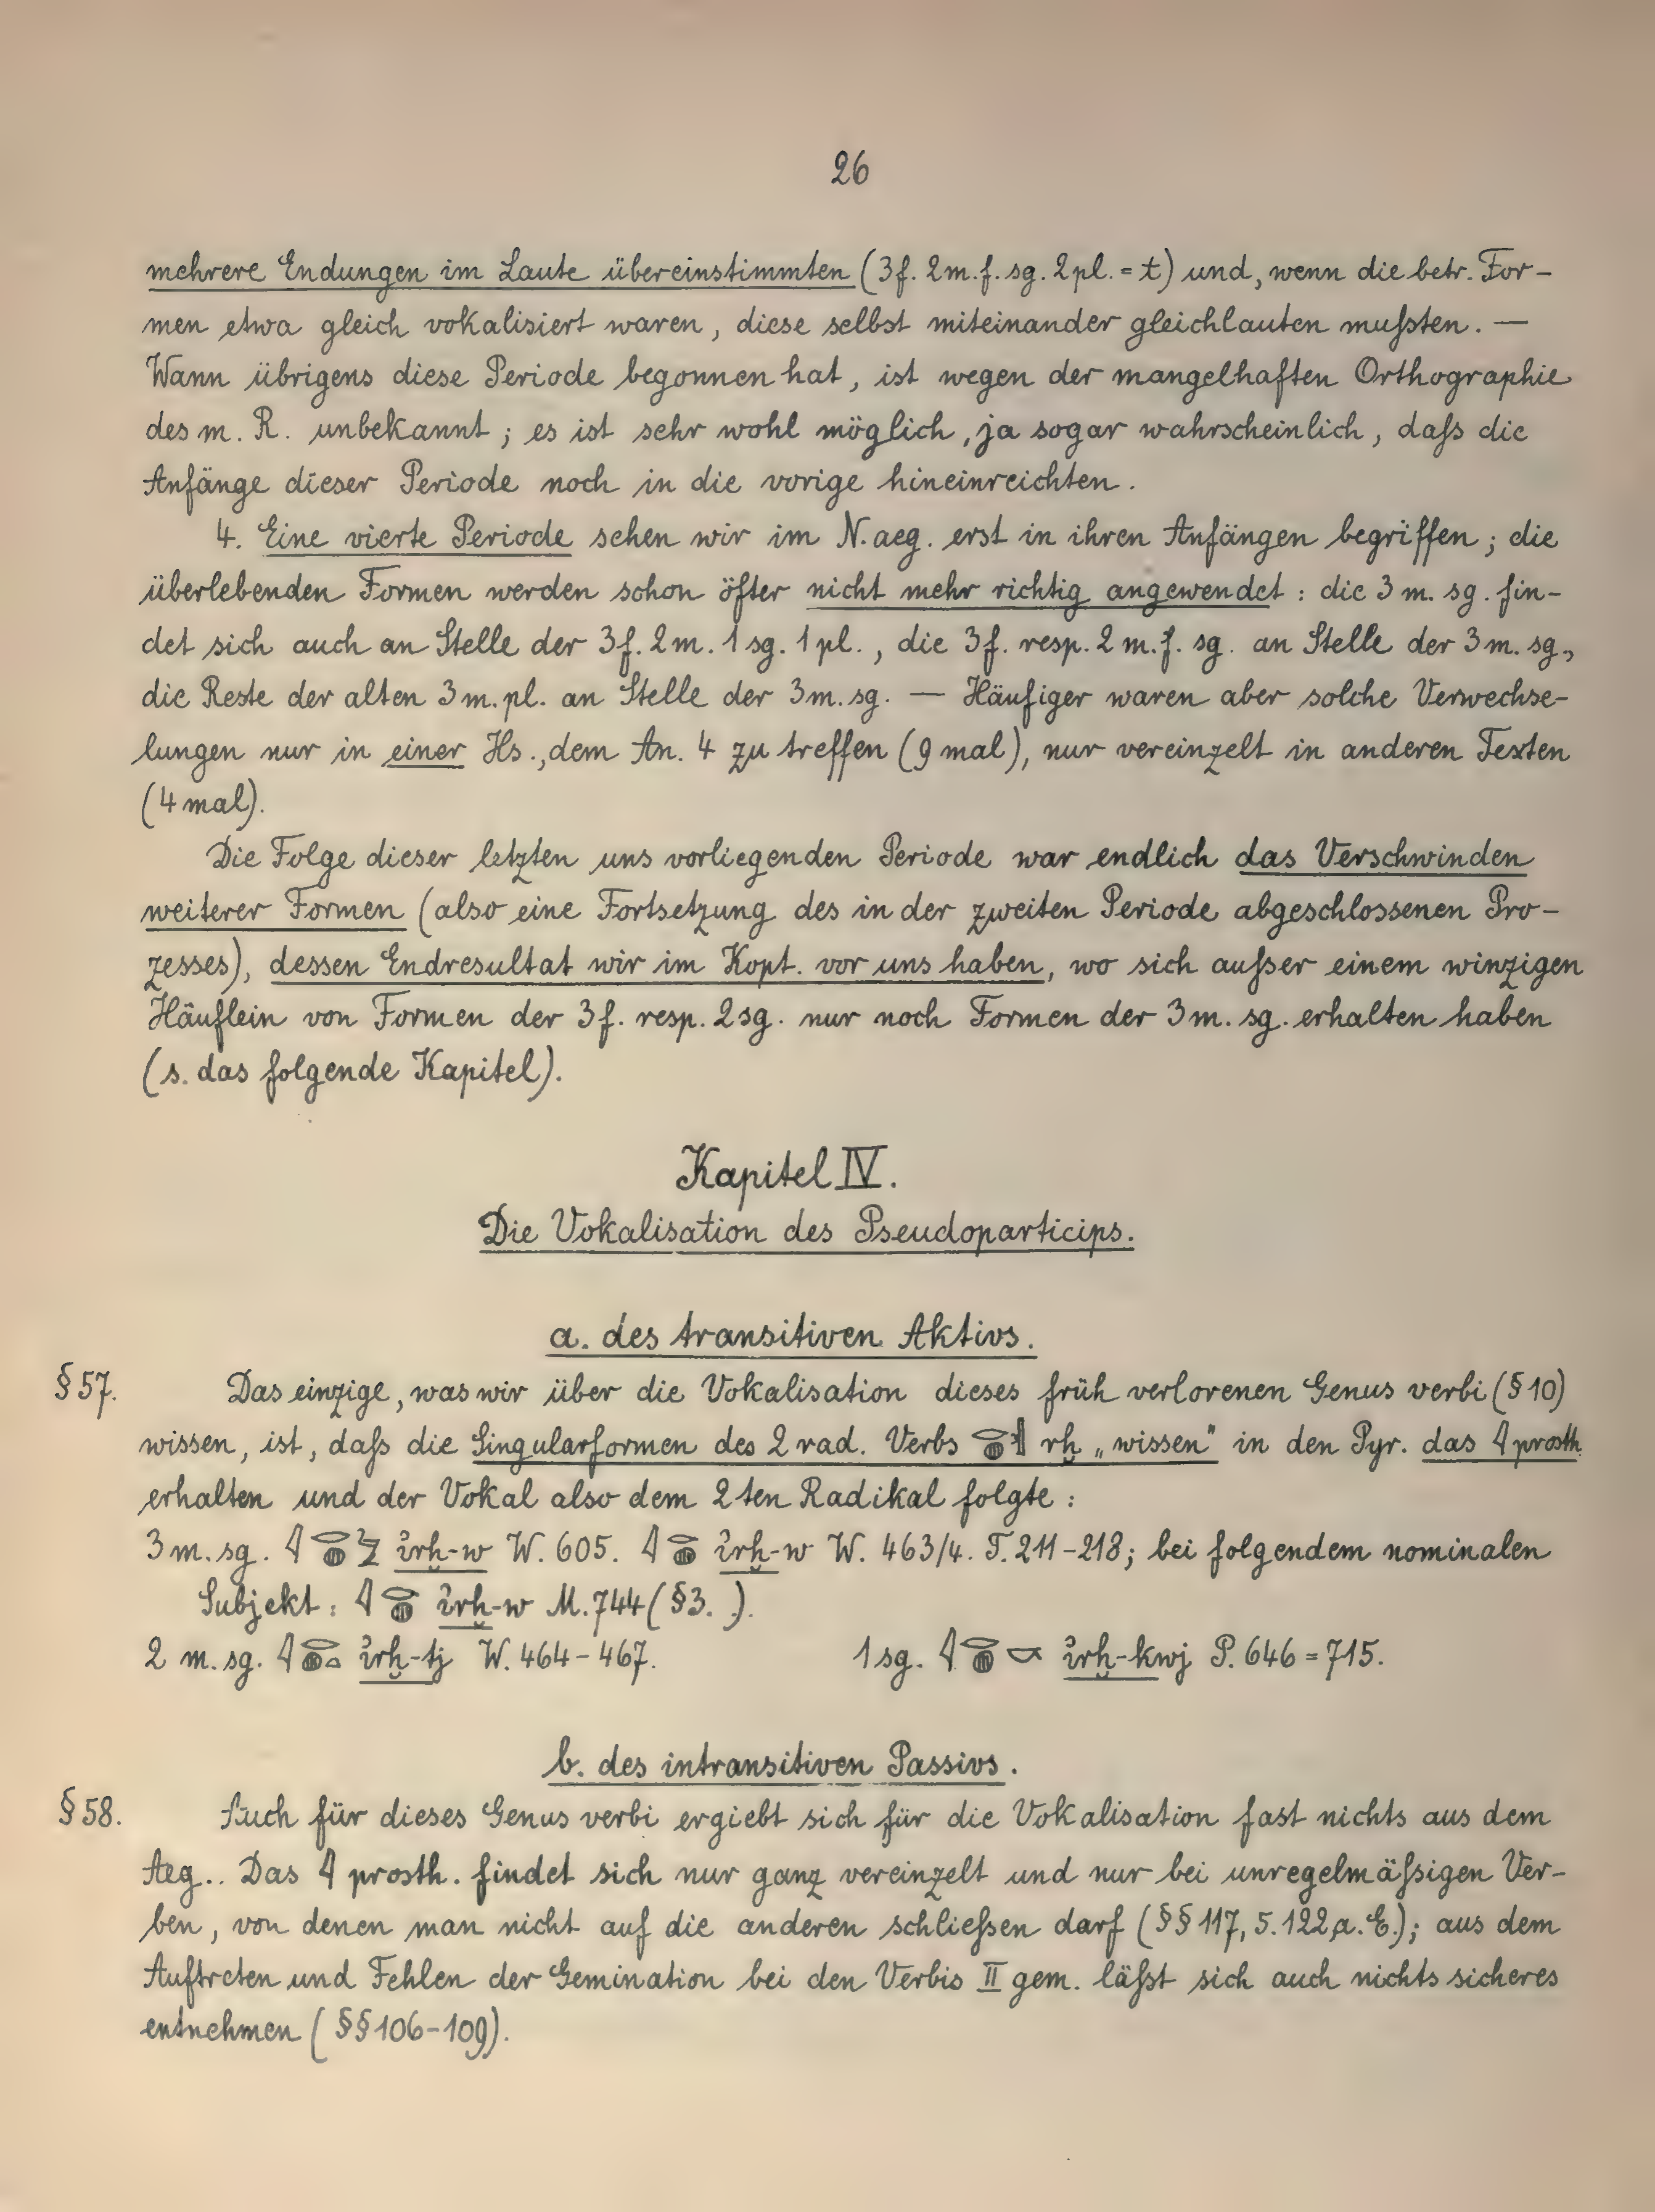 26
mehrere Endungen im Laute übereinstimmten (3f. 2m.f. sg. 2pl. = t) und, wenn die betr. For-
men etwa gleich vokalisiert waren, diese selbst miteinander gleichlauten mußten. —
Wann übrigens diese Periode begonnen hat, ist wegen der mangelhaften Orthographie
des m. R. unbekannt; es ist sehr wohl möglich, ja sogar wahrscheinlich, daß die
Anfänge dieser Periode noch in die vorige hineinreichten.
4. Eine vierte Periode sehen wir im N.aeg. erst in ihren Anfängen begriffen; die
überlebenden Formen werden schon öfter nicht mehr richtig angewendet: die 3 m. sg. fin-
det sich auch an Stelle der 3f. 2m. 1 sg. 1 pl., die 3f. resp. 2 m.f. sg. an Stelle der 3m. sg.,
die Reste der alten 3m. pl. an Stelle der 3m. sg. — Häufiger waren aber solche Verwechse-
lungen nur in einer Hs., dem An. 4 zu treffen (9 mal), nur vereinzelt in anderen Texten
(4 mal).
Die Folge dieser letzten uns vorliegenden Periode war endlich das Verschwinden
weiterer Formen (also eine Fortsetzung des in der zweiten Periode abgeschlossenen Pro-
zesses), dessen Endresultat wir im Kopt. vor uns haben, wo sich außer einem winzigen
Häuflein von Formen der 3f. resp. 2sg. nur noch Formen der 3m. sg. erhalten haben
(s. das folgende Kapitel).
Kapitel IV.
Die Vokalisation des Pseudoparticips.
a. des transitiven Aktivs.
§ 57. Das einzige, was wir über die Vokalisation dieses früh verlorenen Genus verbi (§ 10)
wissen, ist, daß die Singularformen des 2 rad. Verbs 𓂋𓐍𓏛 rḫ „wissen" in den Pyr. das 𓇋 prosth.
erhalten und der Vokal also dem 2ten Radikal folgte:
3 m. sg. 𓇋𓂋𓐍𓅱 i҆rḫ-w W. 605. 𓇋𓂋𓐍 i҆rḫ-w W. 463/4. T. 211-218; bei folgendem nominalen
Subjekt: 𓇋𓂋𓐍 i҆rḫ-w M. 744 (§3. ).
2 m. sg. 𓇋𓂋𓐍𓏏 i҆rḫ-tj W. 464-467. 1 sg. 𓇋𓂋𓐍𓎡 i҆rḫ-kwj P. 646 = 715.
b. des intransitiven Passivs.
§ 58. Auch für dieses Genus verbi ergiebt sich für die Vokalisation fast nichts aus dem
Aeg.. Das 𓇋 prosth. findet sich nur ganz vereinzelt und nur bei unregelmäßigen Ver-
ben, von denen man nicht auf die anderen schließen darf (§§ 117, 5. 122, a. E.); aus dem
Auftreten und Fehlen der Gemination bei den Verbis II gem. läßt sich auch nichts sicheres
entnehmen (§§ 106-109).